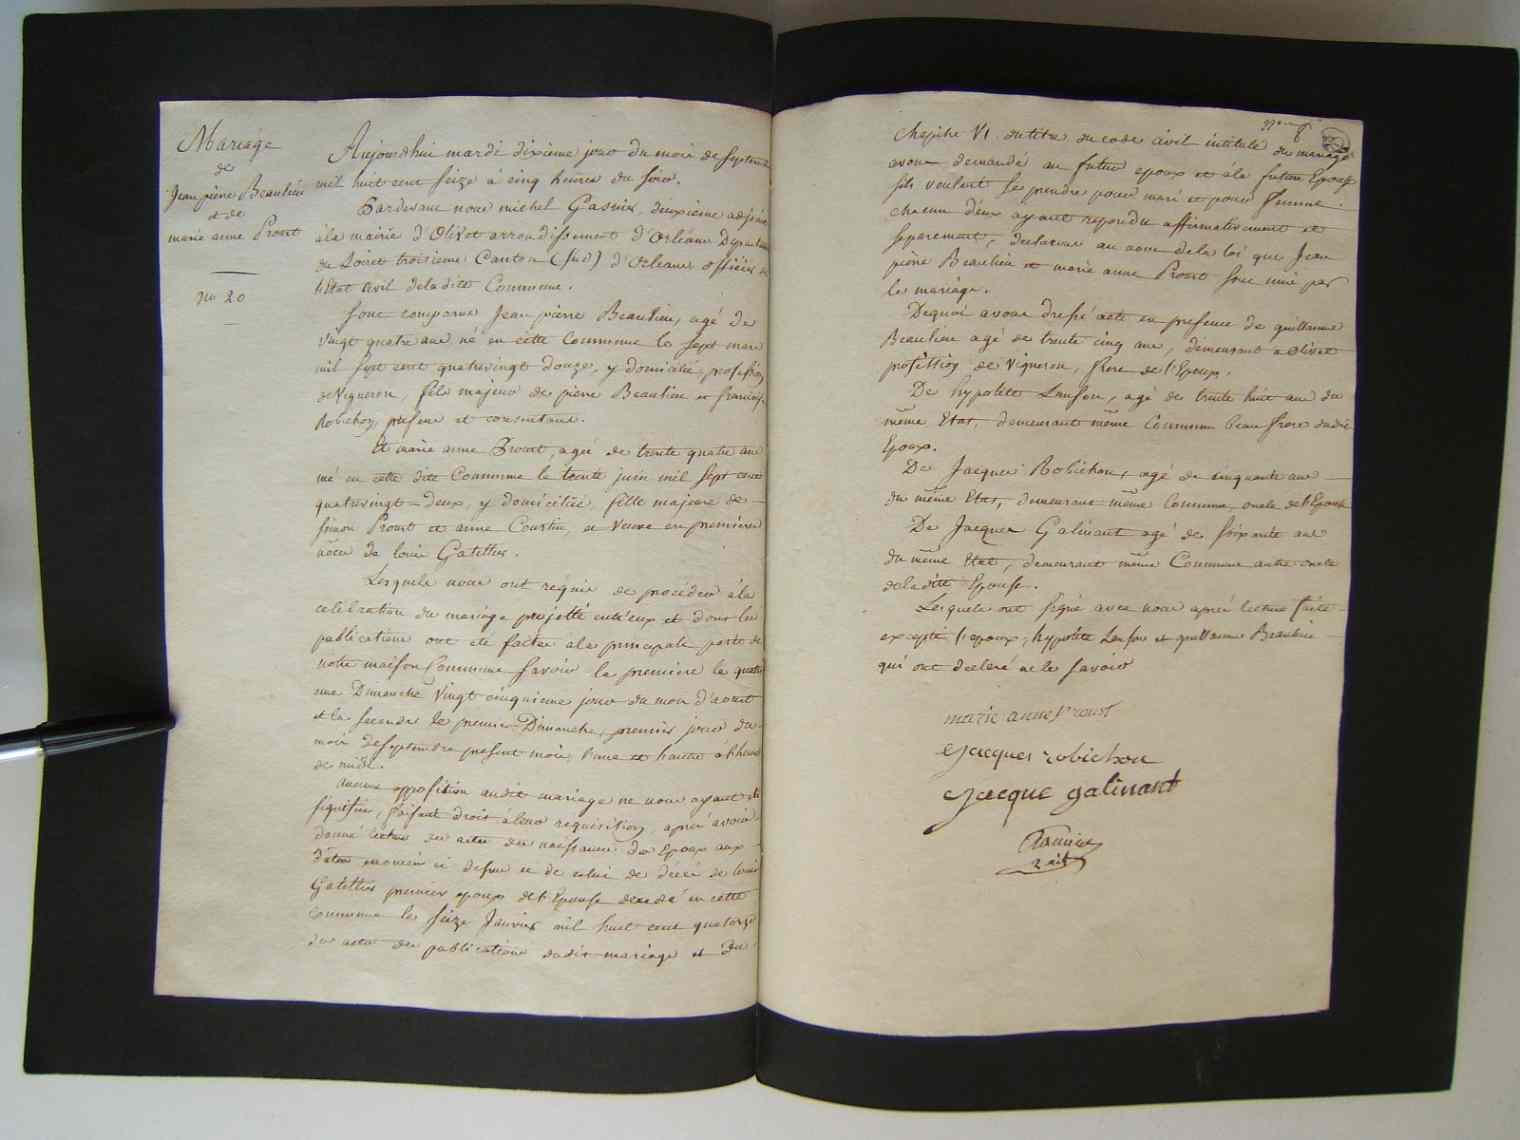 Mariage
de
Jean pierre Beaulieu
et de
marie anne Proust
No 20
Aujourdhui mardi dixieme jour du mois de Septembre
mil huit cent seize à cinq heures du soir.
Pardevant nous michel Gasnier, deuxieme adjoint
à la mairie d'Olivet arrondissement d'Orléans Departement
du Loiret troisieme Canton (sud) d'Orleans officier de
l'Etat Civil de la dite Commune.
Sont comparus Jean pierre Beaulieu, agé de
vingt quatre ans né en cette Commune le sept mars
mil sept cent quatrevingt douze, y domicilié, profession
de Vigneron, fils majeur de pierre Beaulieu et françoise
Robichon, present et consentant.
Et marie anne Proust, agée de trente quatre ans
née en cette dite Commune le trente juin mil sept cent
quatrevingt-deux, y domiciliée, fille majeure de
simon Proust et anne Coustin, et Veuve en premieres
noces de louis Gatellier.
Lesquels nous ont requis de proceder à la
celebration du mariage projetté entr'eux et dont les
publications ont eté faites à la principale porte de
notre maison Commune savoir la premiere le quatri
eme Dimanche Vingt cinquieme jour du mois d'aoust
et la seconde le premier Dimanche, premier jour du
mois de septembre present mois, l'une et l'autre à l'heure
de midi.
aucune opposition audit mariage ne nous ayant été
signifiée, faisant droit à leur requisition, après avoir
donné lecture des actes de naissance des Epoux aux
dates enoncées ci dessus et de celui de décès de louis
Gatellier premier epoux de l'Epouse decedé en cette
Commune le seize Janvier mil huit cent quatorze
des actes des publications dudit mariage et du
Chapitre VI. du titre du code civil intitulé du mariage
avons demandé au futur epoux et à la future Epouse
s'ils veulent se prendre pour mari et pour femme.
chacun d'eux ayant repondu affirmativement et
separement, declarons au nom de la loi que Jean
pierre Beaulieu et marie anne Proust sont unis par
le mariage.
De quoi avons dressé acte en presence de guillaume
Beaulieu agé de trente cinq ans, demeurant à Olivet
profession de Vigneron, frere de l'Epoux.
De hypolite Lanson, agé de trente huit ans du
même Etat, demeurant même Commune beau frere dudit
Epoux.
De Jacques Robichon, agé de cinquante ans
du même Etat, demeurant même Commune, oncle de l'Epoux
De Jacques Galinant agé de soixante ans
du même Etat, demeurant même Commune autre oncle
de la dite Epouse.
Lesquels ont signé avec nous après lecture faite
excepté l'epoux, hypolite Lanson et guillaume Beaulieu
qui ont declaré ne le savoir
marie anne Proust
Jacques robichon
Jacque galinant
Gasnier
2e adjt